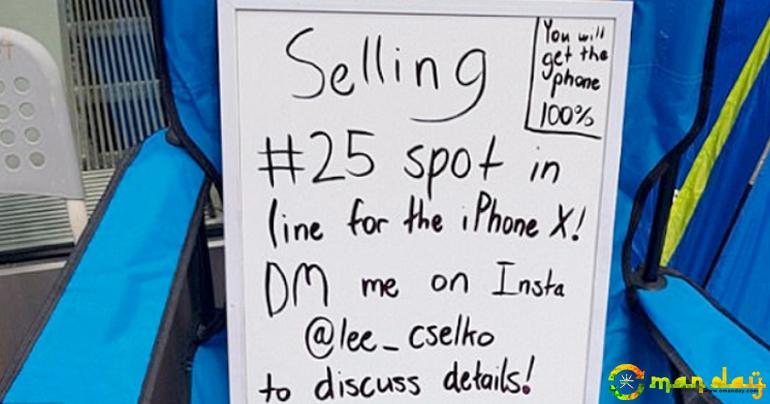 Selling
You will
get the
phone
100%
#25 spot in
line for the iPhone X!
DM me on Insta
@lee_cselko
to discuss details!
Omanday
www.omanday.com